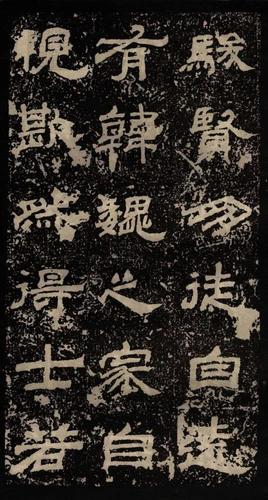 駿賢朋徒自遠
有韓魏之家自
視欿然得士若